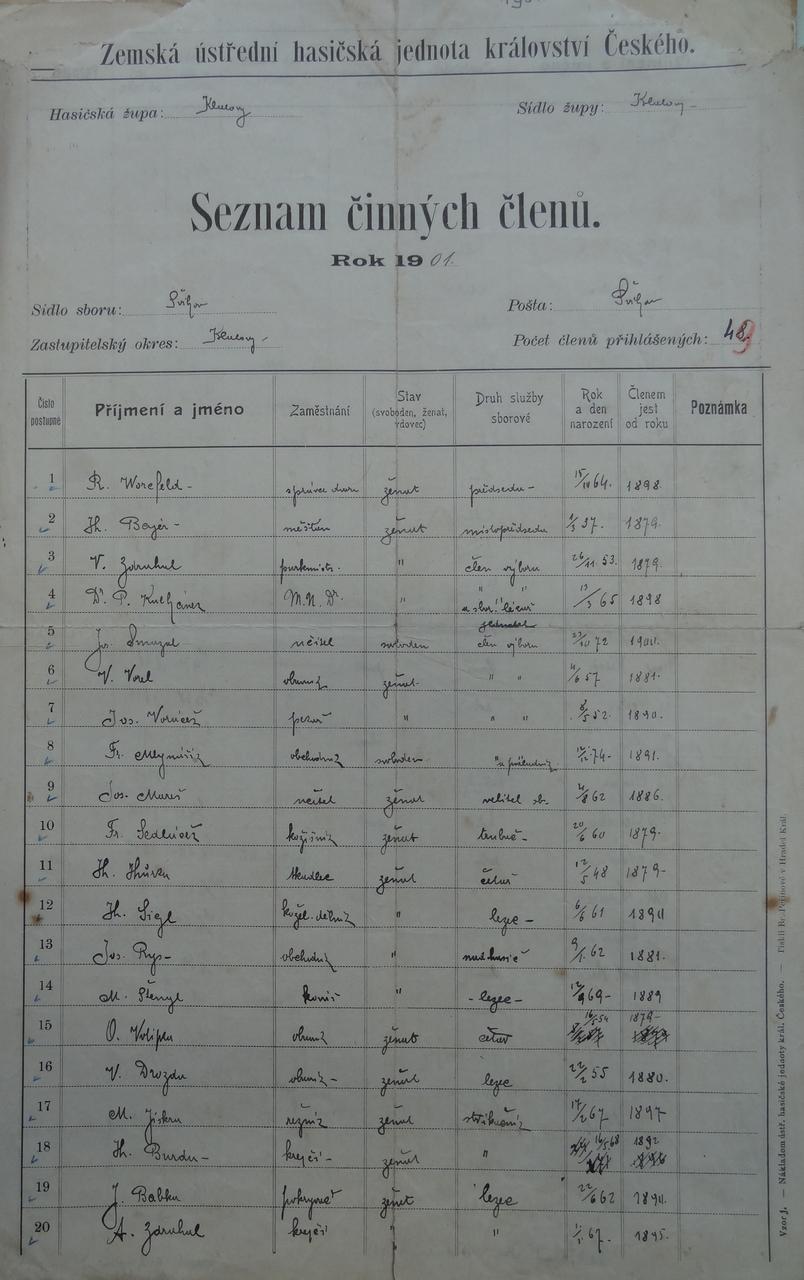 Zemská ústřední hasičská jednota království Českého.
Hasičská župa: Klatovy Sídlo župy: Klatovy
Seznam činných členů.
Rok 1901.
Sídlo sboru: Švihov Pošta: Švihov
Zastupitelský okres: Klatovy Počet členů přihlášených: 48
Číslo postupné Příjmení a jméno Zaměstnání Stav (svoboden, ženat, vdovec) Druh služby sborové Rok a den narození Členem jest od roku Poznámka
1 R. správce ženat předseda 15/IV 64. 1898
2 měšťan ženat místopředseda 37. 1879.
3 V. Zdruhal purkmistr. " člen výboru 26/11 53. 1879.
4 Dr. P. M.U.Dr. " " " a sbor. lékař 65 1898
5 Jos. Smazal učitel svoboden jednatel člen výboru 72 1900.
6 V. Vorel obuvník ženat " " 57 1881.
7 Jos. pekař " " " 8/5 52. 1890.
8 Fr. obchodník svoboden " a pokladník 74 1891.
9 Jos. Mareš učitel ženat velitel sb. 62 1886.
10 Fr. Sedláček kožišník ženat trubač 20/6 60 1879
11 tkadlec ženat četař 12/5 48 1879
12 Sigl kožel. dělník " lezec 6/6 61 1890
13 Jos. Rys obchodník " nadhasič 9/1. 62 1881.
14 M. Štengl " lezec 69 1889
15 O. Volipka obuvník ženat četař 54 1879
16 V. Drozda obuvník ženat lezec 22/2 55 1880.
17 M. Jiskra řezník ženat stříkačník 17/2 67 1897
18 Burda krejčí ženat " 16/5 68 1892
19 J. Babka pokrývač ženat lezec 22/6 62 1890.
20 A. Zdruhal krejčí " " 1/1. 67. 1895.
Vzor J. — Nákladem ústř. hasičské jednoty král. Českého. — Tiskli Br. Peřinové v Hradci Král.